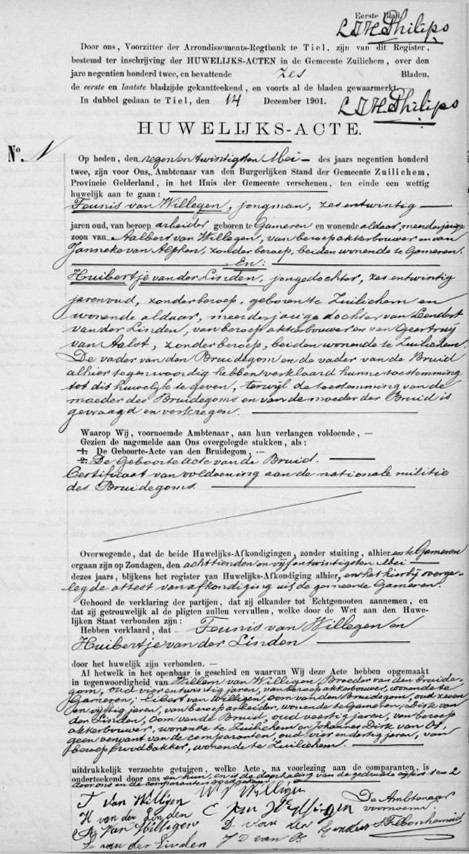 Eerste Blad.
L H Philips
Door ons, Voorzitter der Arrondissements-Regtbank te Tiel, zijn van dit Register,
bestemd ter inschrijving der HUWELIJKS-ACTEN in de Gemeente Zuilichem, over den
jare negentien honderd twee, en bevattende zes Bladen,
de eerste en laatste bladzijde gekantteekend, en voorts al de bladen gewaarmerkt.
In dubbel gedaan te Tiel, den 14 December 1901.
Philips
HUWELIJKS-ACTE.
No. 1
Op heden, den negen en twintigsten Mei — des jaars negentien honderd
twee, zijn voor Ons, Ambtenaar van den Burgerlijken Stand der Gemeente Zuilichem,
Provincie Gelderland, in het Huis der Gemeente verschenen, ten einde een wettig
huwelijk aan te gaan:
Teunis van Willegen, jongman, zes en twintig
jaren oud, van beroep arbeider geboren te Gameren en wonende aldaar, meerderjarige
zoon van Aalbert van Willegen, van beroep akkerbouwer en van
Janneke van Alphen, zonder beroep, beiden wonende te Gameren.
En:
Huibertje van der Linden, jongedochter, zes en twintig
jaren oud, zonder beroep, geboren te Zuilichem en
wonende aldaar, meerderjarige dochter van Leendert
van der Linden, van beroep akkerbouwer en van Geertruij
van Aalst, zonder beroep, beiden wonende te Zuilichem.
De vader van den Bruidegom en de vader van de Bruid
alhier tegenwoordig hebben verklaard hunne toestemming
tot dit huwelijk te geven, terwijl de toestemming van de
moeder des Bruidegoms en van de moeder der Bruid is
gevraagd en verkregen.
Waarop Wij, voornoemde Ambtenaar, aan hun verlangen voldoende, —
Gezien de nagemelde aan Ons overgelegde stukken, als:
1. De Geboorte-Acte van den Bruidegom, —
2. De Geboorte Acte van de Bruid.
Certificaat van voldoening aan de nationale militie
des Bruidegoms.
Overwegende, dat de beide Huwelijks-Afkondigingen, zonder stuiting, alhier en te Gameren
ergaan zijn op Zondagen, den achttienden en vijf en twintigsten Mei
dezes jaars, blijkens het register van Huwelijks-Afkondiging alhier, en het hierbij overge-
legde attest van afkondiging uit de gemeente Gameren.
Gehoord de verklaring der partijen, dat zij elkander tot Echtgenooten aannemen, en
dat zij getrouwelijk al de pligten zullen vervullen, welke door de Wet aan den Huwe-
lijken Staat verbonden zijn:
Hebben verklaard, dat Teunis van Willegen en
Huibertje van der Linden
door het huwelijk zijn verbonden. —
Al hetwelk in het openbaar is geschied en waarvan Wij deze Acte hebben opgemaakt
in tegenwoordigheid van Willem van Willigen, Broeder van den bruide-
gom, oud vier en twintig jaren, van beroep akkerbouwer, wonende te
Gameren; van Willigen, oom van den Bruidegom, oud zeven
en vijftig jaren, van beroep arbeider, wonende te Gameren; Dirk van
der Linden, oom van de Bruid, oud veertig jaren, van beroep
akkerbouwer, wonende te Zuilichem en Johannes Dirk van Os,
geen verwant van de comparanten, oud vier en dertig jaren, van
beroep broodbakker, wonende te Zuilichem.
uitdrukkelijk verzochte getuigen, welke Acte, na voorlezing aan de comparanten, is
onderteekend door ons en hun, en is de doorhaling van de gedrukte cijfers 1 en 2
door ons en de comparanten
T van Willigen W v Willigen
H van der Linden van Willigen De Ambtenaar
van Willigen D van der Linden voornoemd
L van der Linden J D van Os